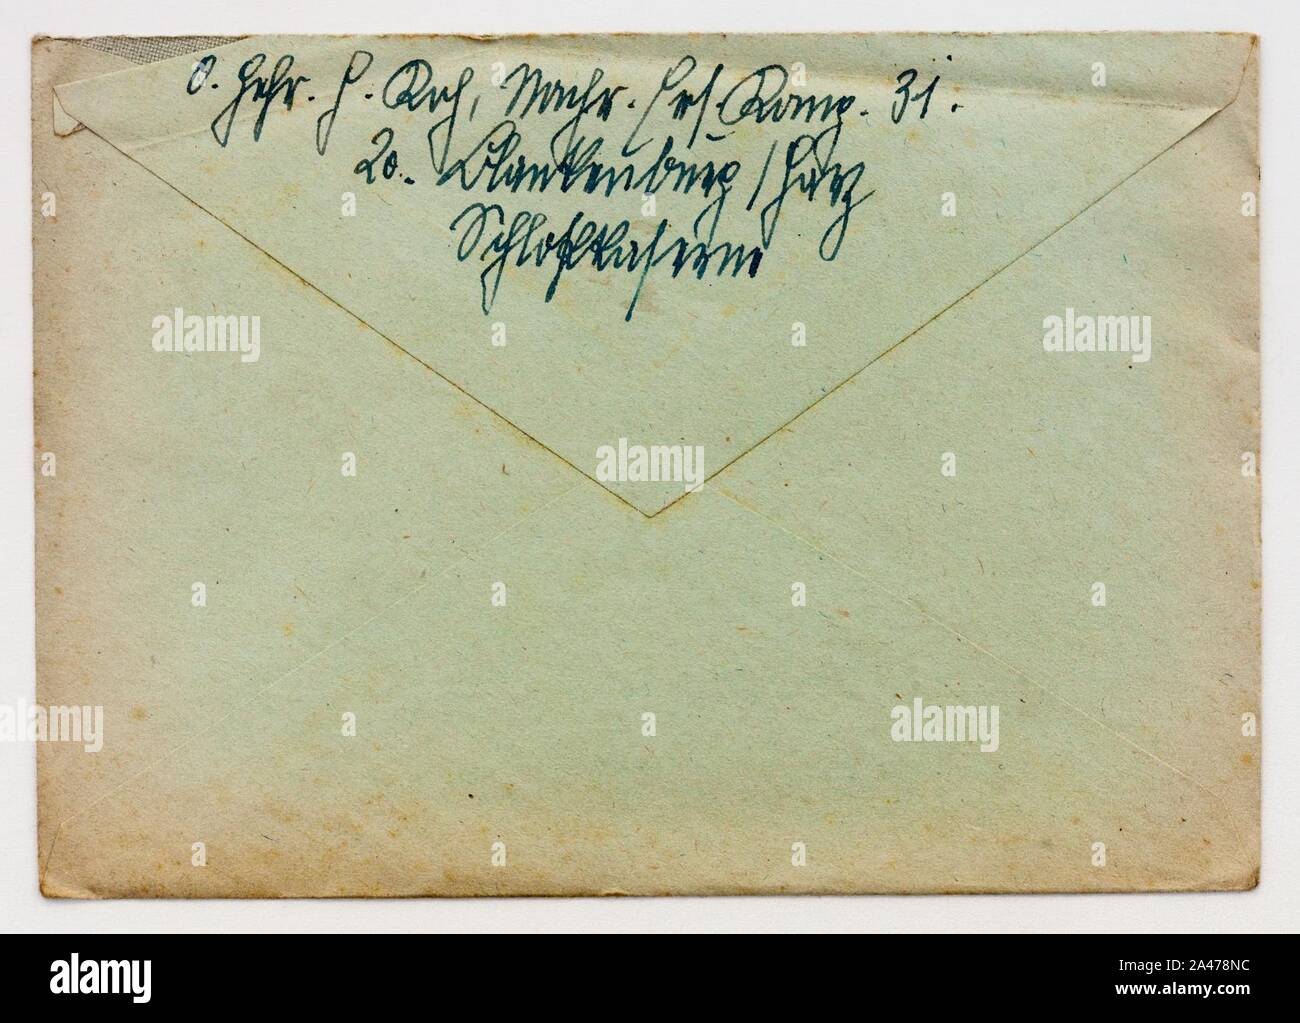 O. Gefr. H. Koch, Nachr. Ers. Komp. 31.
20. Blankenburg / Harz
Schloßkaserne
alamy
alamy
alamy
alamy
alamy
alamy
Image ID: 2A478NC
www.alamy.com